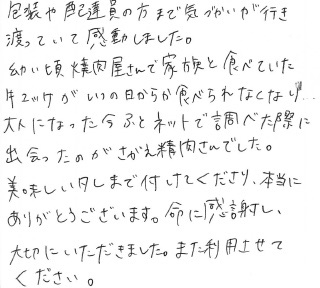 包装や配達員の方まで気づかいが行き
渡っていて感動しました。
幼い頃焼肉屋さんで家族と食べていた
牛ユッケがいつの日からか食べられなくなり…
大人になった今ふとネットで調べた際に
出会ったのがさがえ精肉さんでした。
美味しいタレまで付けてくださり、本当に
ありがとうございます。命に感謝し、
大切にいただきました。また利用させて
ください。